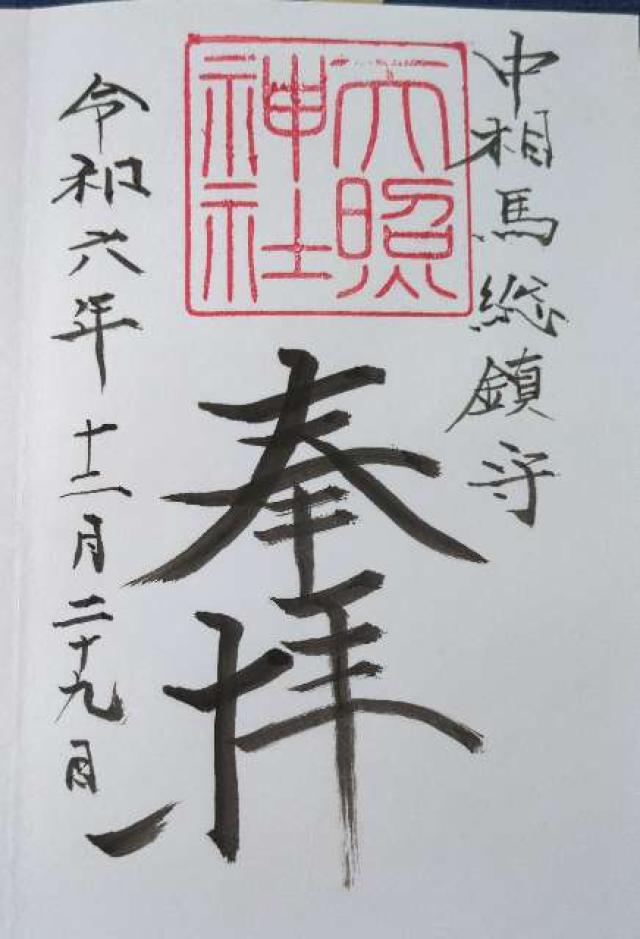 中相馬総鎮守
天照神社
奉拝
令和六年十二月二十九日